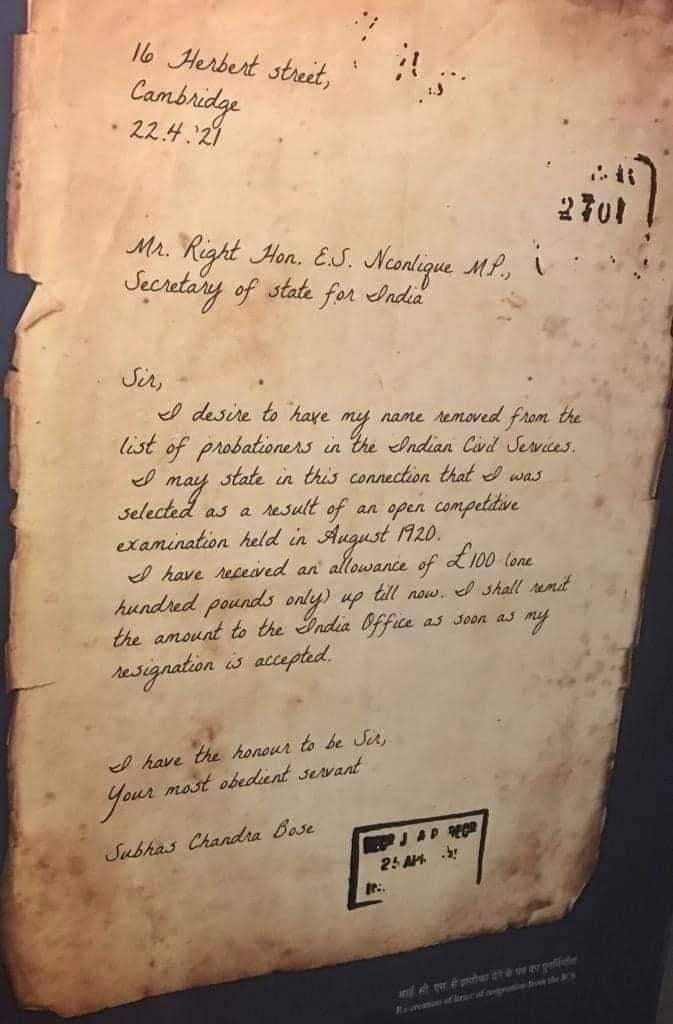 16 Herbert street,
Cambridge
22.4.'21
2701
Mr. Right Hon. E.S. Nconlique MP.,
Secretary of state for India
Sir,
I desire to have my name removed from the
list of probationers in the Indian Civil Services.
I may state in this connection that I was
selected as a result of an open competitive
examination held in August 1920.
I have received an allowance of £100 (one
hundred pounds only) up till now. I shall remit
the amount to the India Office as soon as my
resignation is accepted.
I have the honour to be Sir,
Your most obedient servant
Subhas Chandra Bose
J & P
आई. सी. एस. से इस्तीफा देने के पत्र का पुनर्निर्माण
Re-creation of letter of resignation from the ICS